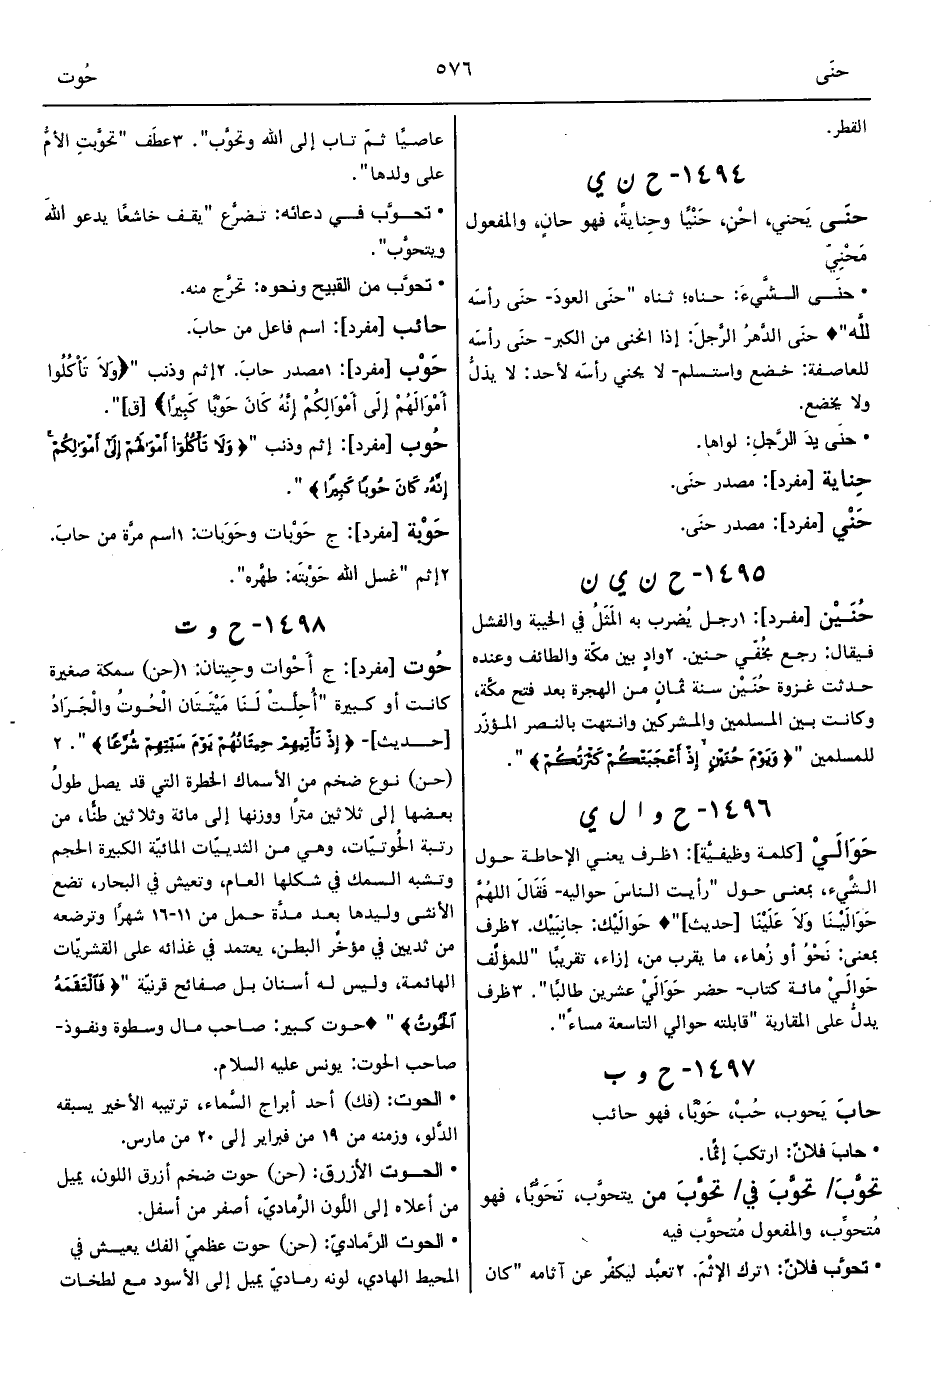 حنَى
٥٧٦
حُوت
القطر.
١٤٩٤- ح ن ي
حنَى يَحني، احْنِ، حَنْيًا وحِنايةً، فهو حانٍ، والمفعول
مَحْنِيّ
• حنَى الشَّيءَ: حناه؛ ثناه "حنَى العودَ- حنَى رأسَه
لله"♦ حنَى الدَّهرُ الرَّجلَ: إذا انحنى من الكبر- حنَى رأسَه
للعاصفة: خضع واستسلم- لا يحني رأسَه لأحد: لا يذلّ
ولا يخضع.
• حنَى يدَ الرَّجلِ: لواها.
حِناية [مفرد]: مصدر حنَى.
حَنْي [مفرد]: مصدر حنَى.
١٤٩٥- ح ن ي ن
حُنَيْن [مفرد]: ١رجل يُضرب به المَثَلُ في الخيبة والفشل
فيقال: رجع بخُفّي حنين. ٢وادٍ بين مكّة والطائف وعنده
حدثت غزوة حُنَيْن سنة ثمانٍ من الهجرة بعد فتح مكّة،
وكانت بين المسلمين والمشركين وانتهت بالنصر المؤزّر
للمسلمين "﴿ وَيَوْمَ حُنَيْنٍ إِذْ أَعْجَبَتْكُمْ كَثْرَتُكُمْ ﴾ ".
١٤٩٦- ح و ا ل ي
حَوَالَيْ [كلمة وظيفيَّة]: ١ظرف يعني الإحاطة حول
الشَّيء، بمعنى حول "رأيت الناسَ حواليه- فَقَالَ اللهُمَّ
حَوَالَيْنَا وَلاَ عَلَيْنَا [حديث]"♦ حَوالَيْك: جانبَيْك. ٢ظرف
بمعنى: نَحْوُ أو زُهاء، ما يقرب من، إزاء، تقريبًا "للمؤلّف
حَوَالَيْ مائة كتاب- حضر حَوَالَيْ عشرين طالبًا". ٣ظرف
يدلّ على المقاربة "قابلته حوالي التاسعة مساءً".
١٤٩٧- ح و ب
حابَ يَحوب، حُبْ، حَوْبًا، فهو حائب
• حابَ فلانٌ: ارتكبَ إثمًا.
تحوَّبَ/ تحوَّبَ في/ تحوَّبَ من يتحوَّب، تَحَوّبًا، فهو
مُتحوِّب، والمفعول مُتحوَّب فيه
• تحوَّب فلانٌ: ١ترك الإثمَ. ٢تعبَّد ليكفِّر عن آثامه "كان
عاصيًا ثمّ تاب إلى الله وتحوَّب". ٣عطَف "تحوَّبتِ الأمُّ
على ولدها".
• تحوَّب في دعائه: تضرَّع "يقف خاشعًا يدعو اللهَ
ويتحوَّب".
• تحوَّب من القبيح ونحوه: تحرَّج منه.
حائب [مفرد]: اسم فاعل من حابَ.
حَوْب [مفرد]: ١مصدر حابَ. ٢إثم وذنب "﴿وَلاَ تَأْكُلُوا
أَمْوَالَهُمْ إِلَى أَمْوَالِكُمْ إِنَّهُ كَانَ حَوْبًا كَبِيرًا﴾ [ق]".
حُوب [مفرد]: إثم وذنب "﴿ وَلَا تَأْكُلُوٓا أَمْوَٰلَهُمْ إِلَىٰٓ أَمْوَٰلِكُمْ ۚ
إِنَّهُۥ كَانَ حُوبًا كَبِيرًا ﴾ ".
حَوْبة [مفرد]: ج حَوْبات وحَوَبات: ١اسم مرَّة من حابَ.
٢إثم "غسل الله حَوْبتَه: طهَّره".
١٤٩٨- ح و ت
حُوت [مفرد]: ج أَحْوات وحِيتان: ١(حن) سمكة صغيرة
كانت أو كبيرة "أُحِلَّتْ لَنَا مَيْتَتَان الْحُوتُ وَالْجَرَادُ
[حديث]- ﴿ إِذْ تَأْتِيهِمْ حِيتَانُهُمْ يَوْمَ سَبْتِهِمْ شُرَّعًا ﴾ ". ٢
(حن) نوع ضخم من الأسماك الخطرة التي قد يصل طولُ
بعضها إلى ثلاثين مترًا ووزنها إلى مائة وثلاثين طنًّا، من
رتبة الحُوتيّات، وهي من الثدييّات المائيّة الكبيرة الحجم
وتشبه السمك في شكلها العام، وتعيش في البحار، تضع
الأنثى وليدها بعد مدَّة حمل من ١١-١٦ شهرًا وترضعه
من ثديين في مؤخّر البطن، يعتمد في غذائه على القشريّات
الهائمة، وليس له أسنان بل صفائح قرنيّة "﴿ فَٱلْتَقَمَهُ
ٱلْحُوتُ ﴾ " ♦حوت كبير: صاحب مال وسطوة ونفوذ-
صاحب الحوت: يونس عليه السلام.
• الحوت: (فك) أحد أبراج السَّماء، ترتيبه الأخير يسبقه
الدَّلو، وزمنه من ١٩ من فبراير إلى ٢٠ من مارس.
• الحوت الأزرق: (حن) حوت ضخم أزرق اللون، يميل
من أعلاه إلى اللَّون الرَّماديّ، أصفر من أسفل.
• الحوت الرَّماديّ: (حن) حوت عظميّ الفك يعيش في
المحيط الهادي، لونه رماديّ يميل إلى الأسود مع لطخات